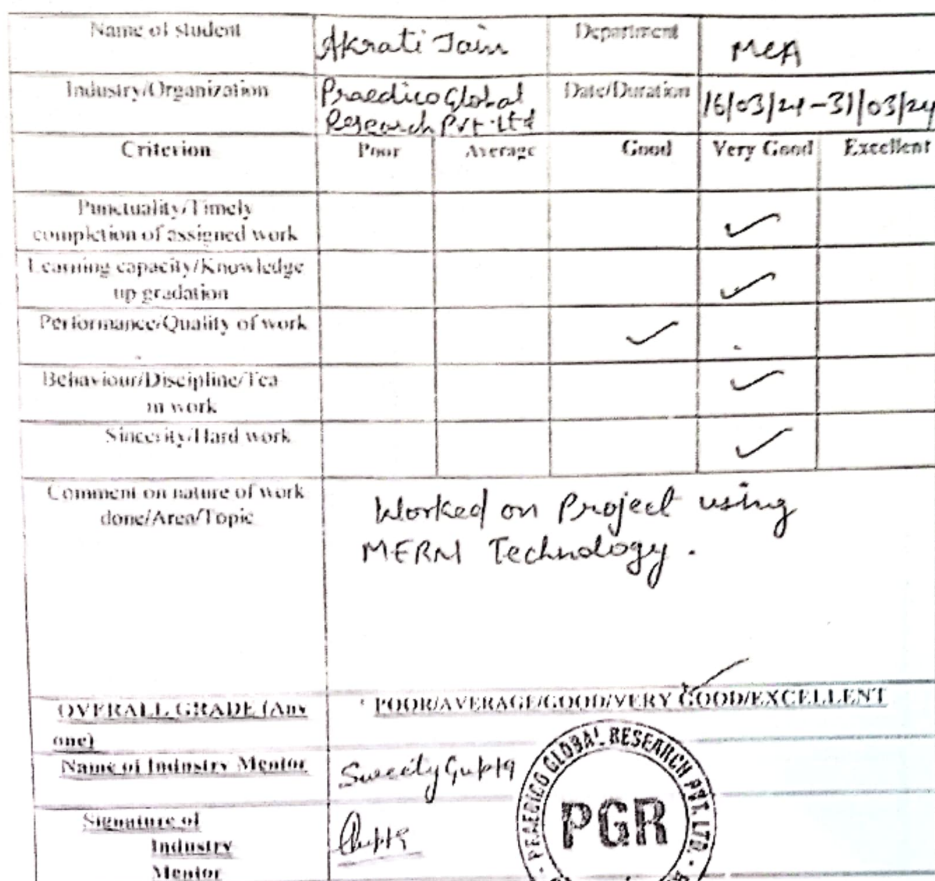 Name of student Akrati Jain Department MCA
Industry/Organization Praedico Global Research Pvt. Ltd Date/Duration 16/03/24-31/03/24
Criterion Poor Average Good Very Good Excellent
Punctuality/Timely
completion of assigned work ✓
Learning capacity/Knowledge
up gradation ✓
Performance/Quality of work ✓
Behaviour/Discipline/Tea
m work ✓
Sincerity/Hard work ✓
Comment on nature of work
done/Area/Topic
Worked on Project using
MERN Technology.
OVERALL GRADE (Any
one)
POOR/AVERAGE/GOOD/VERY GOOD/EXCELLENT
Name of Industry Mentor Sweety Gupta
Signature of
Industry
Mentor
Gupta
PRAEDICO GLOBAL RESEARCH PVT. LTD.
PGR